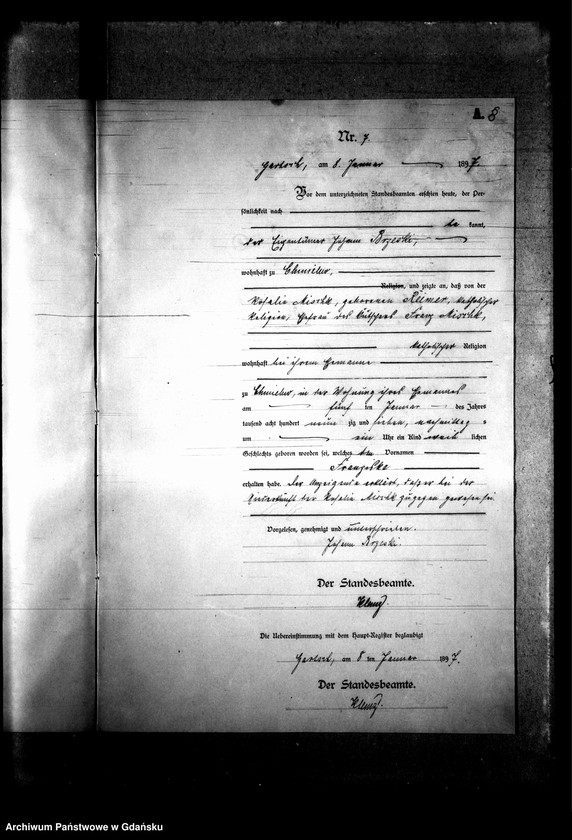 A. 8
Nr. 7
am 8. Januar 1897
Vor dem unterzeichneten Standesbeamten erschien heute, der Per-
sönlichkeit nach
be kannt,
der Eigentümer Johann Brzeski,
wohnhaft zu Chmielno,
Religion, und zeigte an, daß von der
Rosalie geborenen katholischer
Religion, Ehefrau des Franz
katholischer Religion
wohnhaft bei ihrem Ehemanne
zu Chmielno, in der Wohnung ihres Ehemannes
am fünf ten Januar des Jahres
tausend acht hundert neun zig und sieben, nachmittags
um ein Uhr ein Kind weib lichen
Geschlechts geboren worden sei, welches den Vornamen
Franziska
erhalten habe. Der Anzeigende erklärt, daß er bei der
Niederkunft der Rosalie zugegen gewesen sei.
Vorgelesen, genehmigt und unterschrieben.
Johann Brzeski.
Der Standesbeamte.
Die Uebereinstimmung mit dem Haupt-Register beglaubigt
am 8 ten Januar 1897.
Der Standesbeamte.
Archiwum Państwowe w Gdańsku